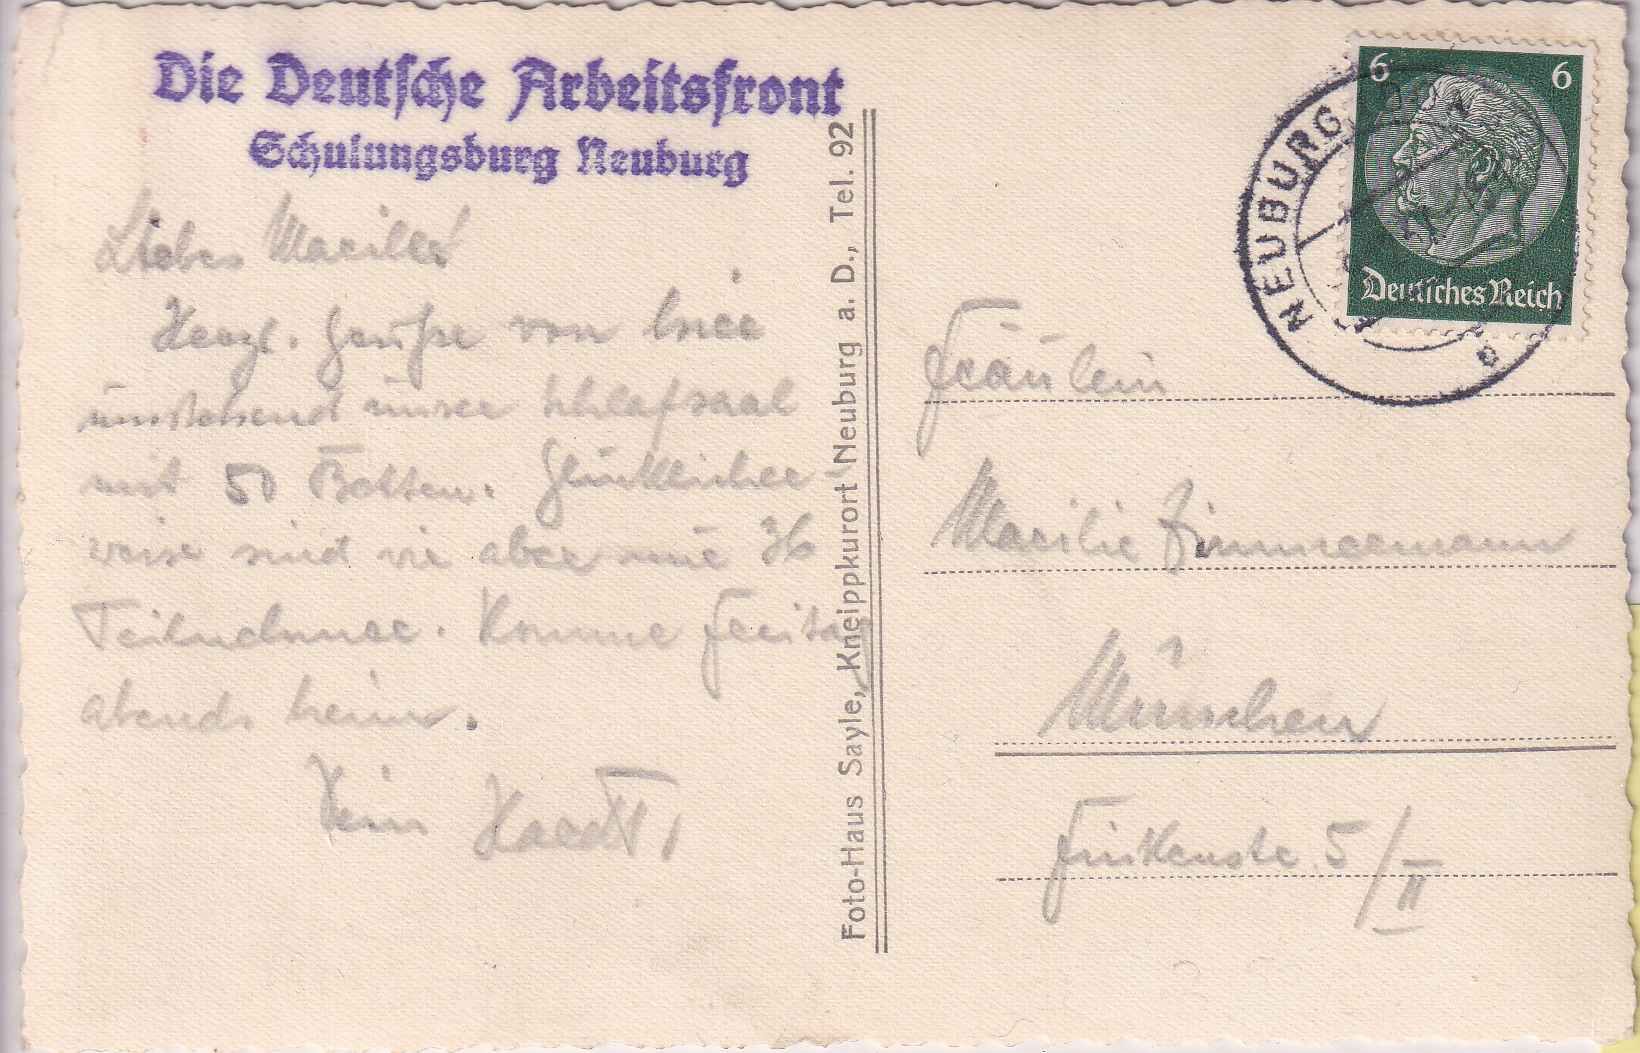 Die Deutsche Arbeitsfront
Schulungsburg Neuburg
Liebes Mariele!
Herzl. Grüße von hier
umstehend unser Schlafsaal
mit 50 Betten. Glücklicher-
weise sind wir aber nur 36
Teilnehmer. Komme Freitag
abends heim.
Dein
Foto-Haus Sayle, Kneippkurort Neuburg a. D., Tel. 92
NEUBURG
6 6
Deutsches Reich
Fräulein
Marilie Zimmermann
München
Finkenstr. 5/II